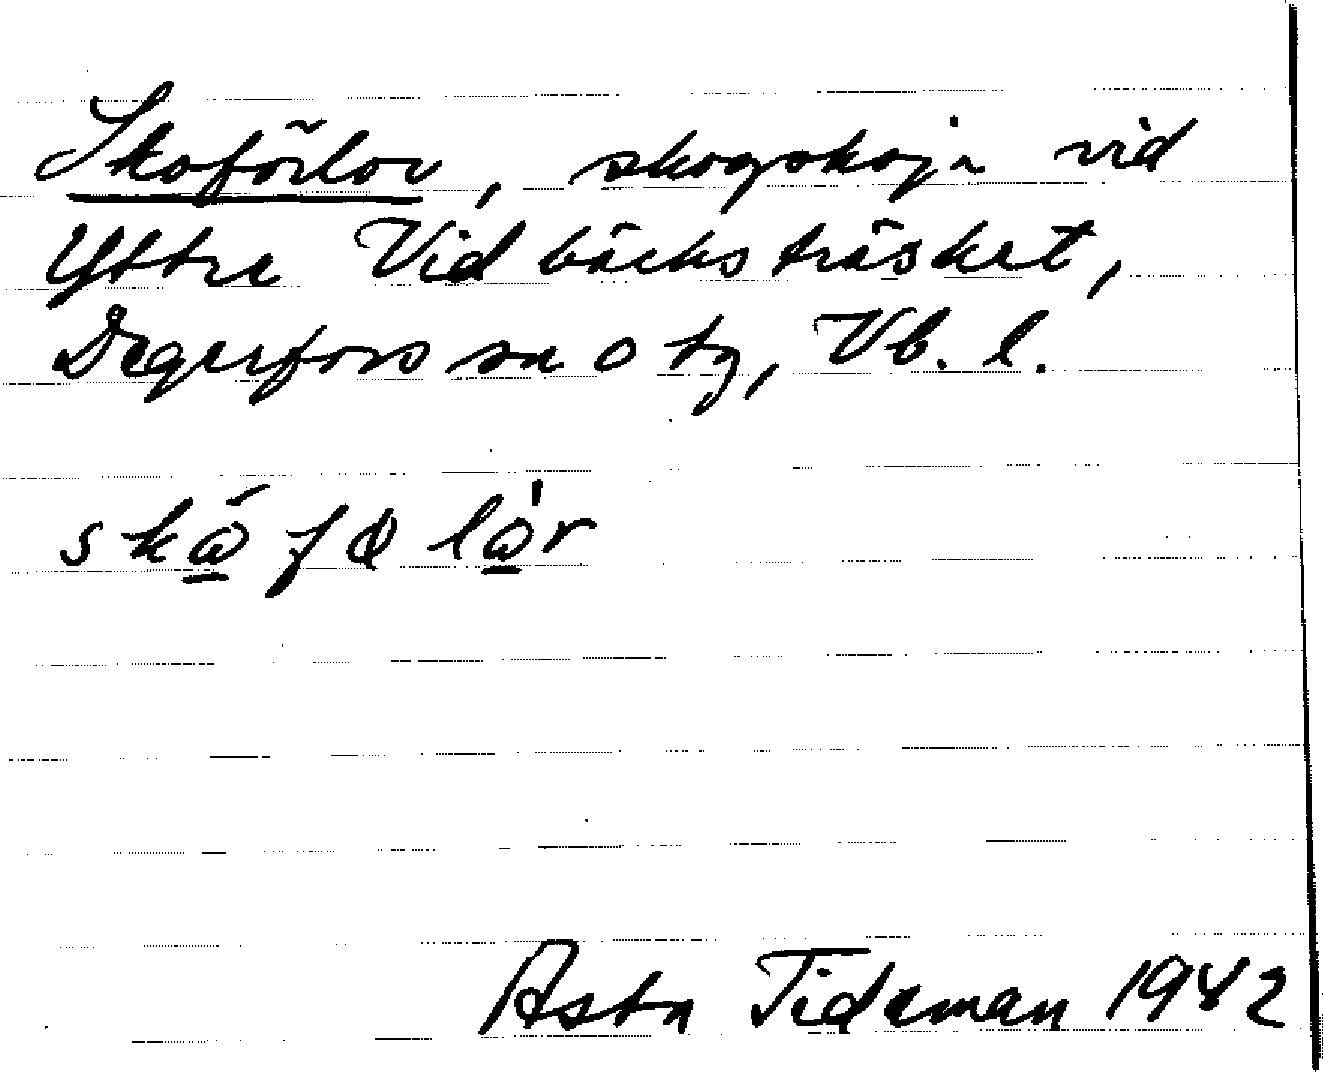 Skoförlov, skogskoja vid
Yttre Vidbäcksträsket,
Degerfors sn o tg, Vb. l.
Asta Tideman 1942